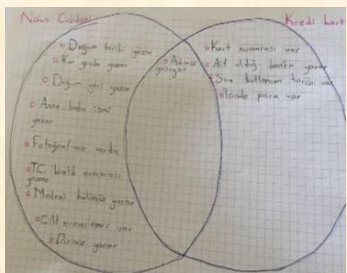 Nüfus Cüzdanı
Kredi kart
Doğum tarihi yazar
Kan grubu yazar
Doğum yeri yazar
Anne-baba ismi
yazar
Fotoğrafımız vardır
TC. kimlik numarası
yazar
Medeni halimiz yazar
Cilt numarası var
Dinimiz yazar
Adımız
yazıyor
Kart numarası var
Ait olduğu banka yazar
Son kullanım tarihi var
İçinde para var